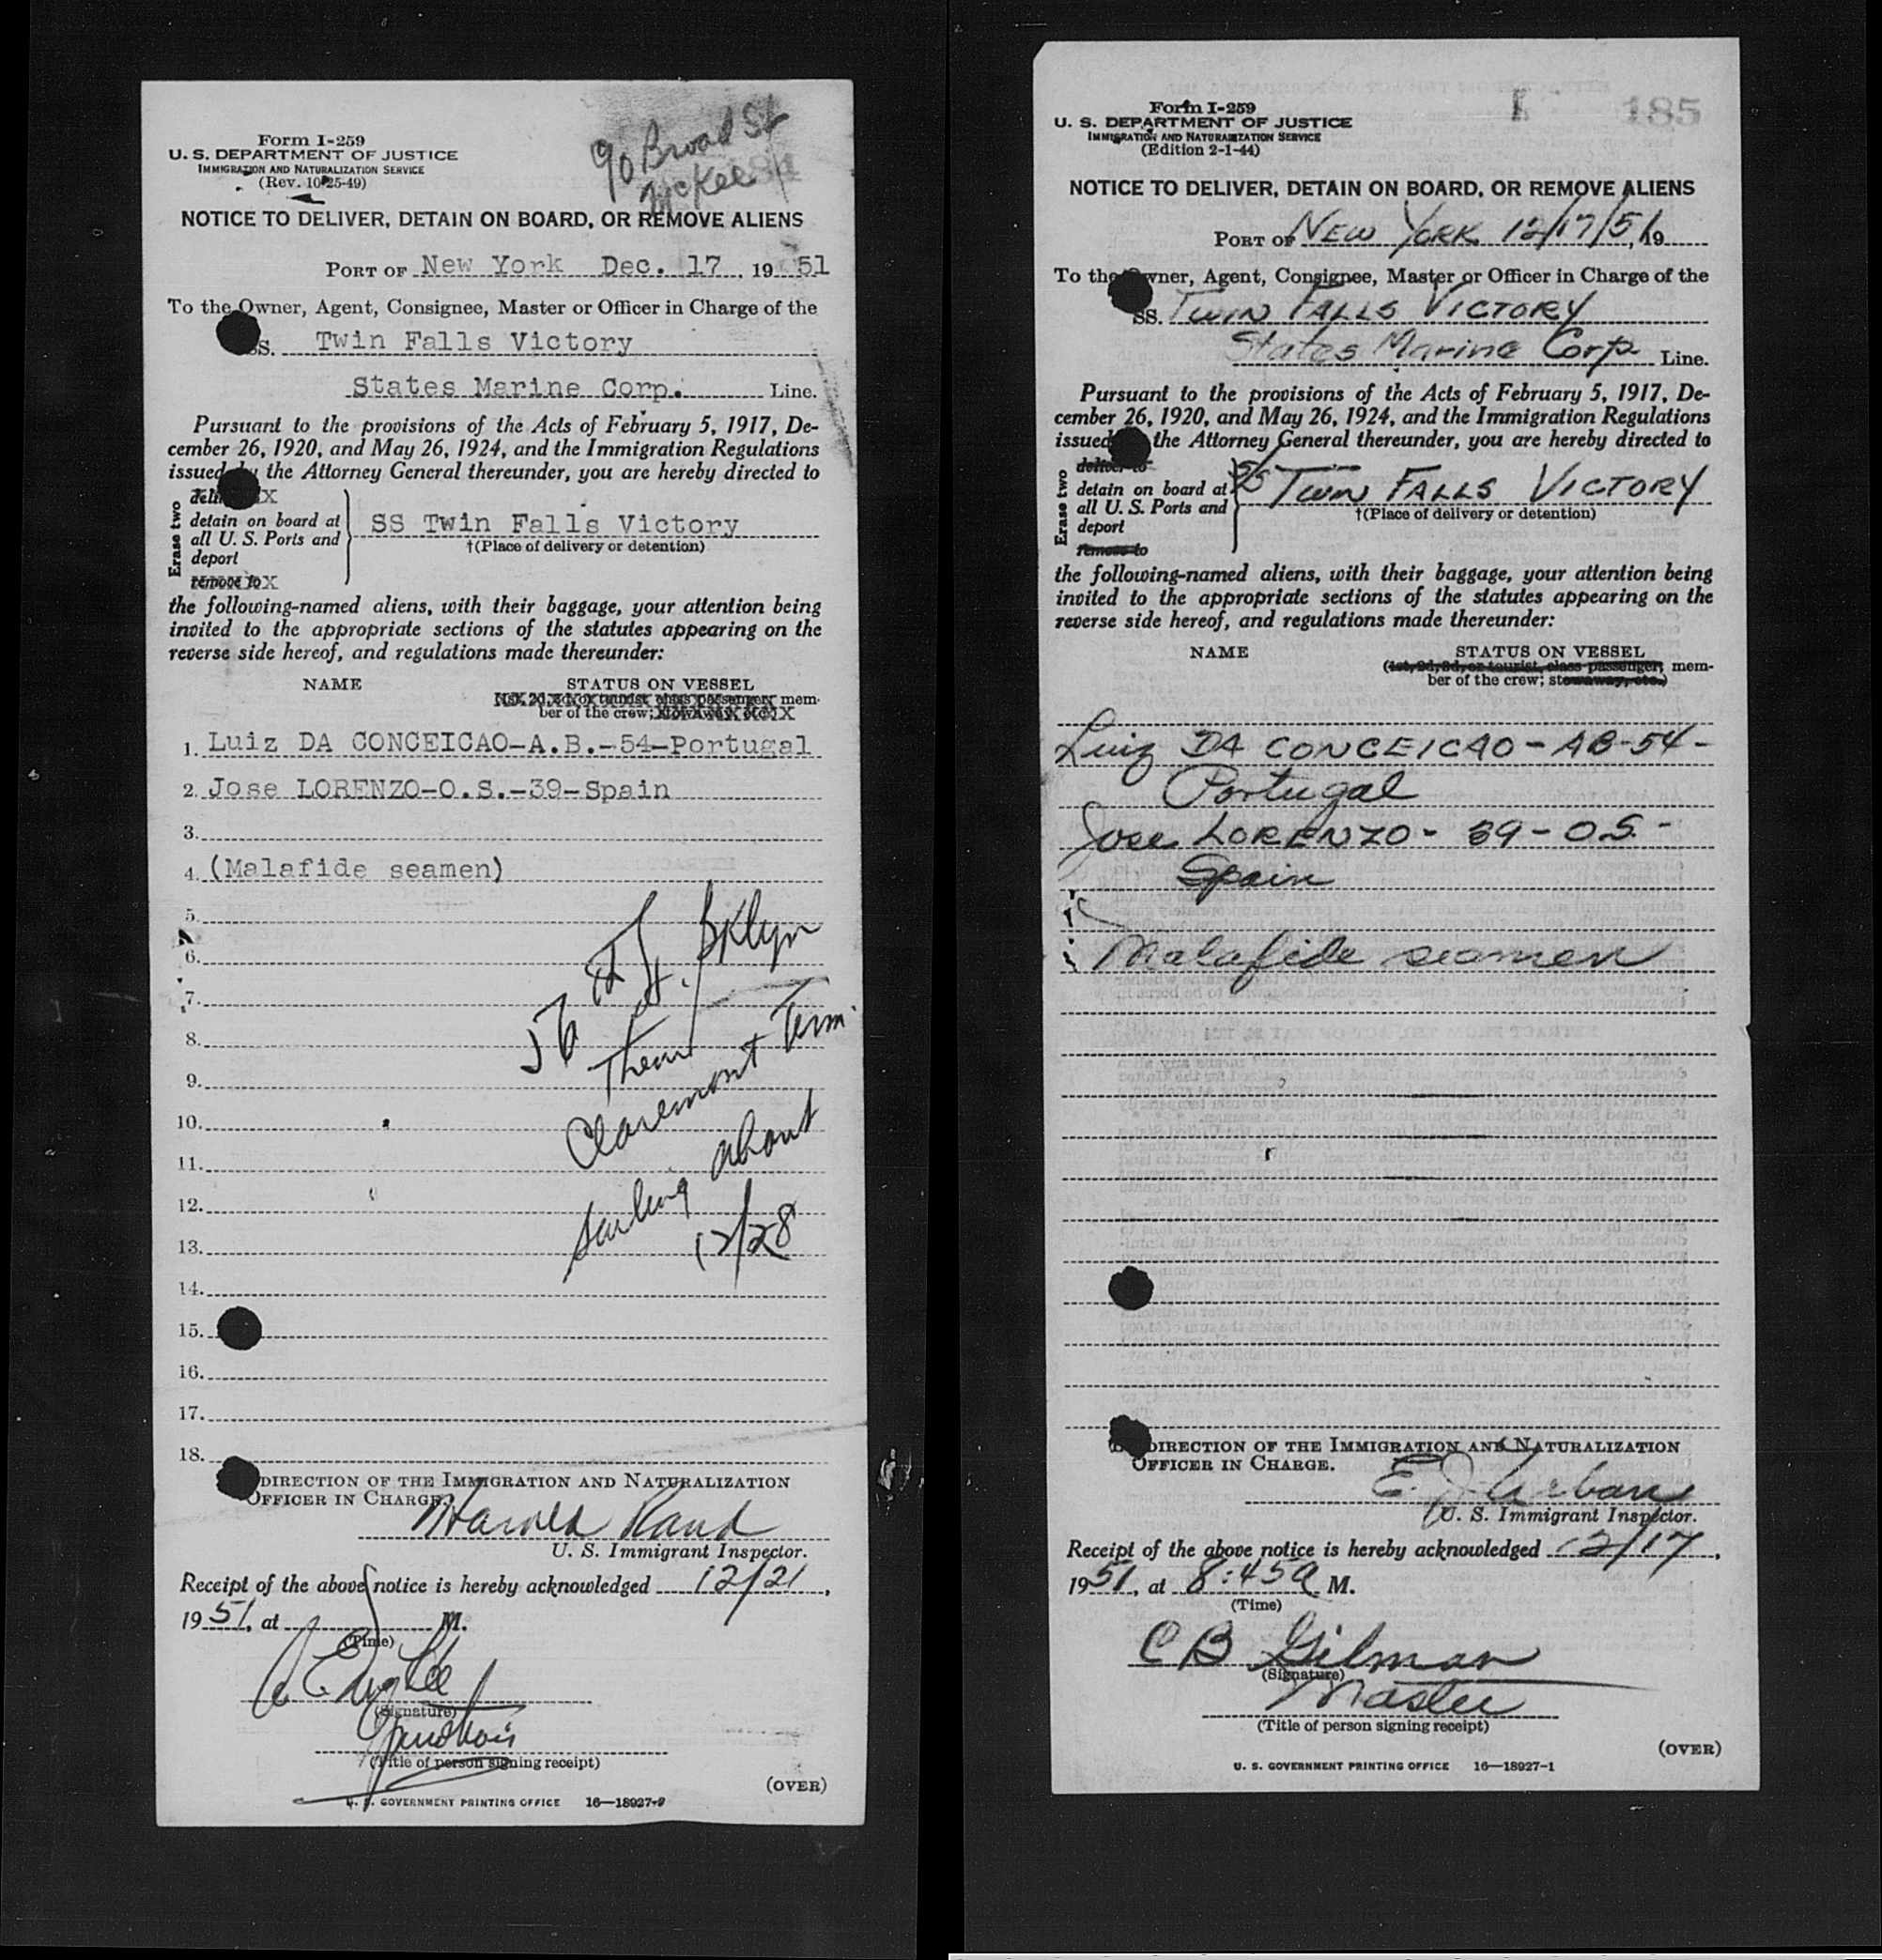 90 Broad St
McKee
Form I-259
U. S. DEPARTMENT OF JUSTICE
IMMIGRATION AND NATURALIZATION SERVICE
(Rev. 10-25-49)
NOTICE TO DELIVER, DETAIN ON BOARD, OR REMOVE ALIENS
PORT OF New York Dec. 17, 19 51
To the Owner, Agent, Consignee, Master or Officer in Charge of the
SS. Twin Falls Victory
States Marine Corp. Line.
Pursuant to the provisions of the Acts of February 5, 1917, De-
cember 26, 1920, and May 26, 1924, and the Immigration Regulations
issued by the Attorney General thereunder, you are hereby directed to
Erase two
detain on board at
all U. S. Ports and
deport
remove to
SS Twin Falls Victory
†(Place of delivery or detention)
the following-named aliens, with their baggage, your attention being
invited to the appropriate sections of the statutes appearing on the
reverse side hereof, and regulations made thereunder:
NAME STATUS ON VESSEL
mem-
ber of the crew;
1. Luiz DA CONCEICAO-A.B.-54-Portugal
2. Jose LORENZO-O.S.-39-Spain
3.
4. (Malafide seamen)
5.
6.
7.
8.
9.
10.
11.
12.
13.
14.
15.
16.
17.
18.
St. Bklyn
Then
Claremont Term.
Sailing about
12/28
DIRECTION OF THE IMMIGRATION AND NATURALIZATION
OFFICER IN CHARGE.
Harold Rand
U. S. Immigrant Inspector.
Receipt of the above notice is hereby acknowledged 12/21,
19 51, at M.
(Time)
(Signature)
(Title of person signing receipt)
(OVER)
U. S. GOVERNMENT PRINTING OFFICE 16—18927-2
185
Form I-259
U. S. DEPARTMENT OF JUSTICE
IMMIGRATION AND NATURALIZATION SERVICE
(Edition 2-1-44)
NOTICE TO DELIVER, DETAIN ON BOARD, OR REMOVE ALIENS
PORT OF NEW YORK 12/17/51, 19
To the Owner, Agent, Consignee, Master or Officer in Charge of the
SS. TWIN FALLS VICTORY
States Marine Corp. Line.
Pursuant to the provisions of the Acts of February 5, 1917, De-
cember 26, 1920, and May 26, 1924, and the Immigration Regulations
issued the Attorney General thereunder, you are hereby directed to
Erase two
deliver to
detain on board at
all U. S. Ports and
deport
remove to
SS TWIN FALLS VICTORY
†(Place of delivery or detention)
the following-named aliens, with their baggage, your attention being
invited to the appropriate sections of the statutes appearing on the
reverse side hereof, and regulations made thereunder:
NAME STATUS ON VESSEL
(1st, 2d, 3d, or tourist, class passenger; mem-
ber of the crew; stowaway, etc.)
Luiz DA CONCEICAO - AB-54-
Portugal
Jose LORENZO - 39 - O.S. -
Spain
Malafide seamen
DIRECTION OF THE IMMIGRATION AND NATURALIZATION
OFFICER IN CHARGE.
E. J. Urban
U. S. Immigrant Inspector.
Receipt of the above notice is hereby acknowledged 12/17,
1951, at 8:45a M.
(Time)
C B Gilman
(Signature)
Master
(Title of person signing receipt)
(OVER)
U. S. GOVERNMENT PRINTING OFFICE 16—18927-1